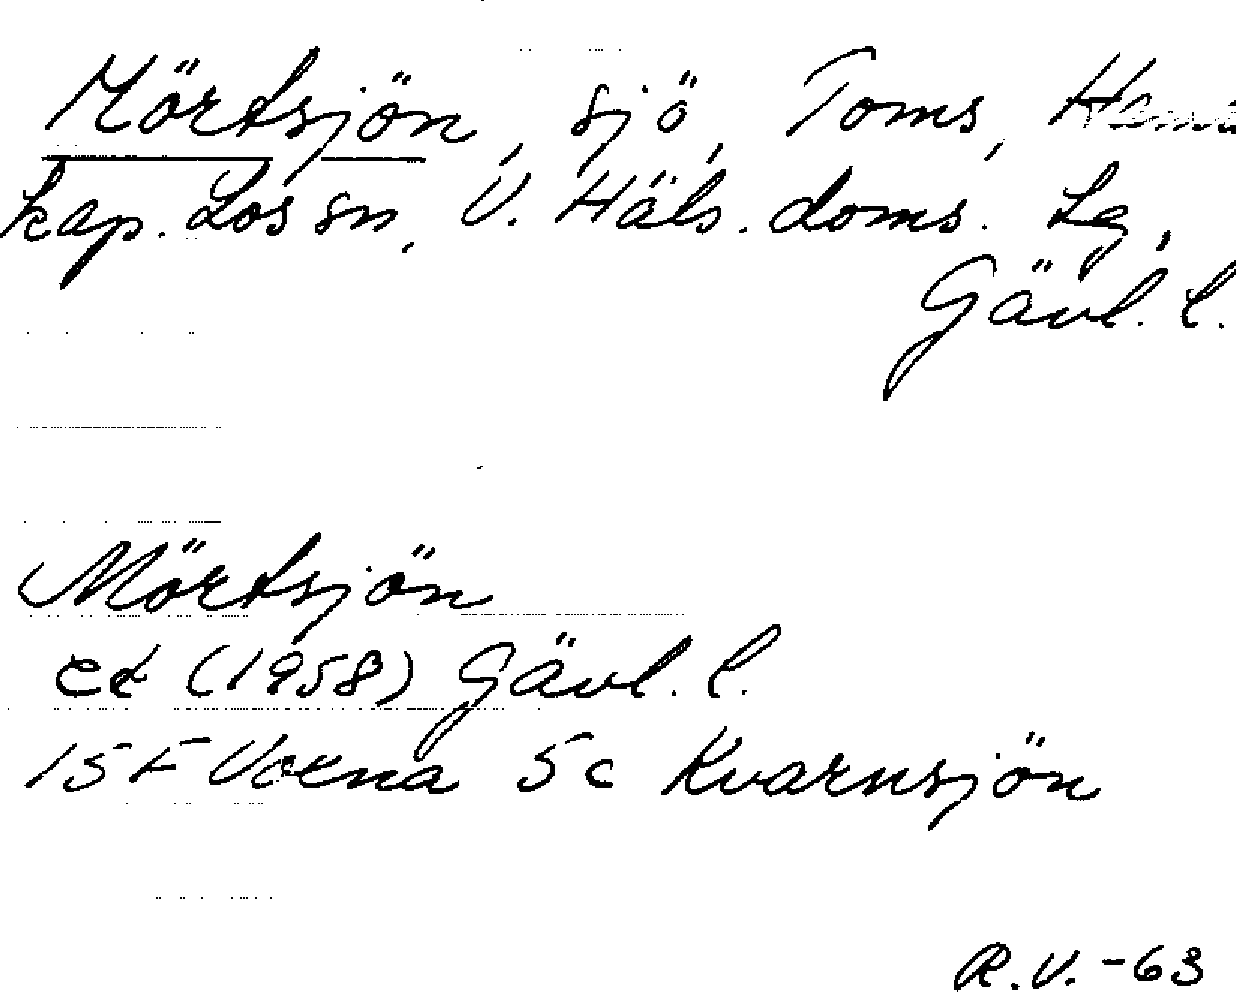 Mörtsjön, sjö, Toms,
kap. Los sn, V. Häls. doms. Lg,
Gävl. l.
Mörtsjön
ek (1958) Gävl. l.
15 F Voxna 5c Kvarnsjön
R.V.-63